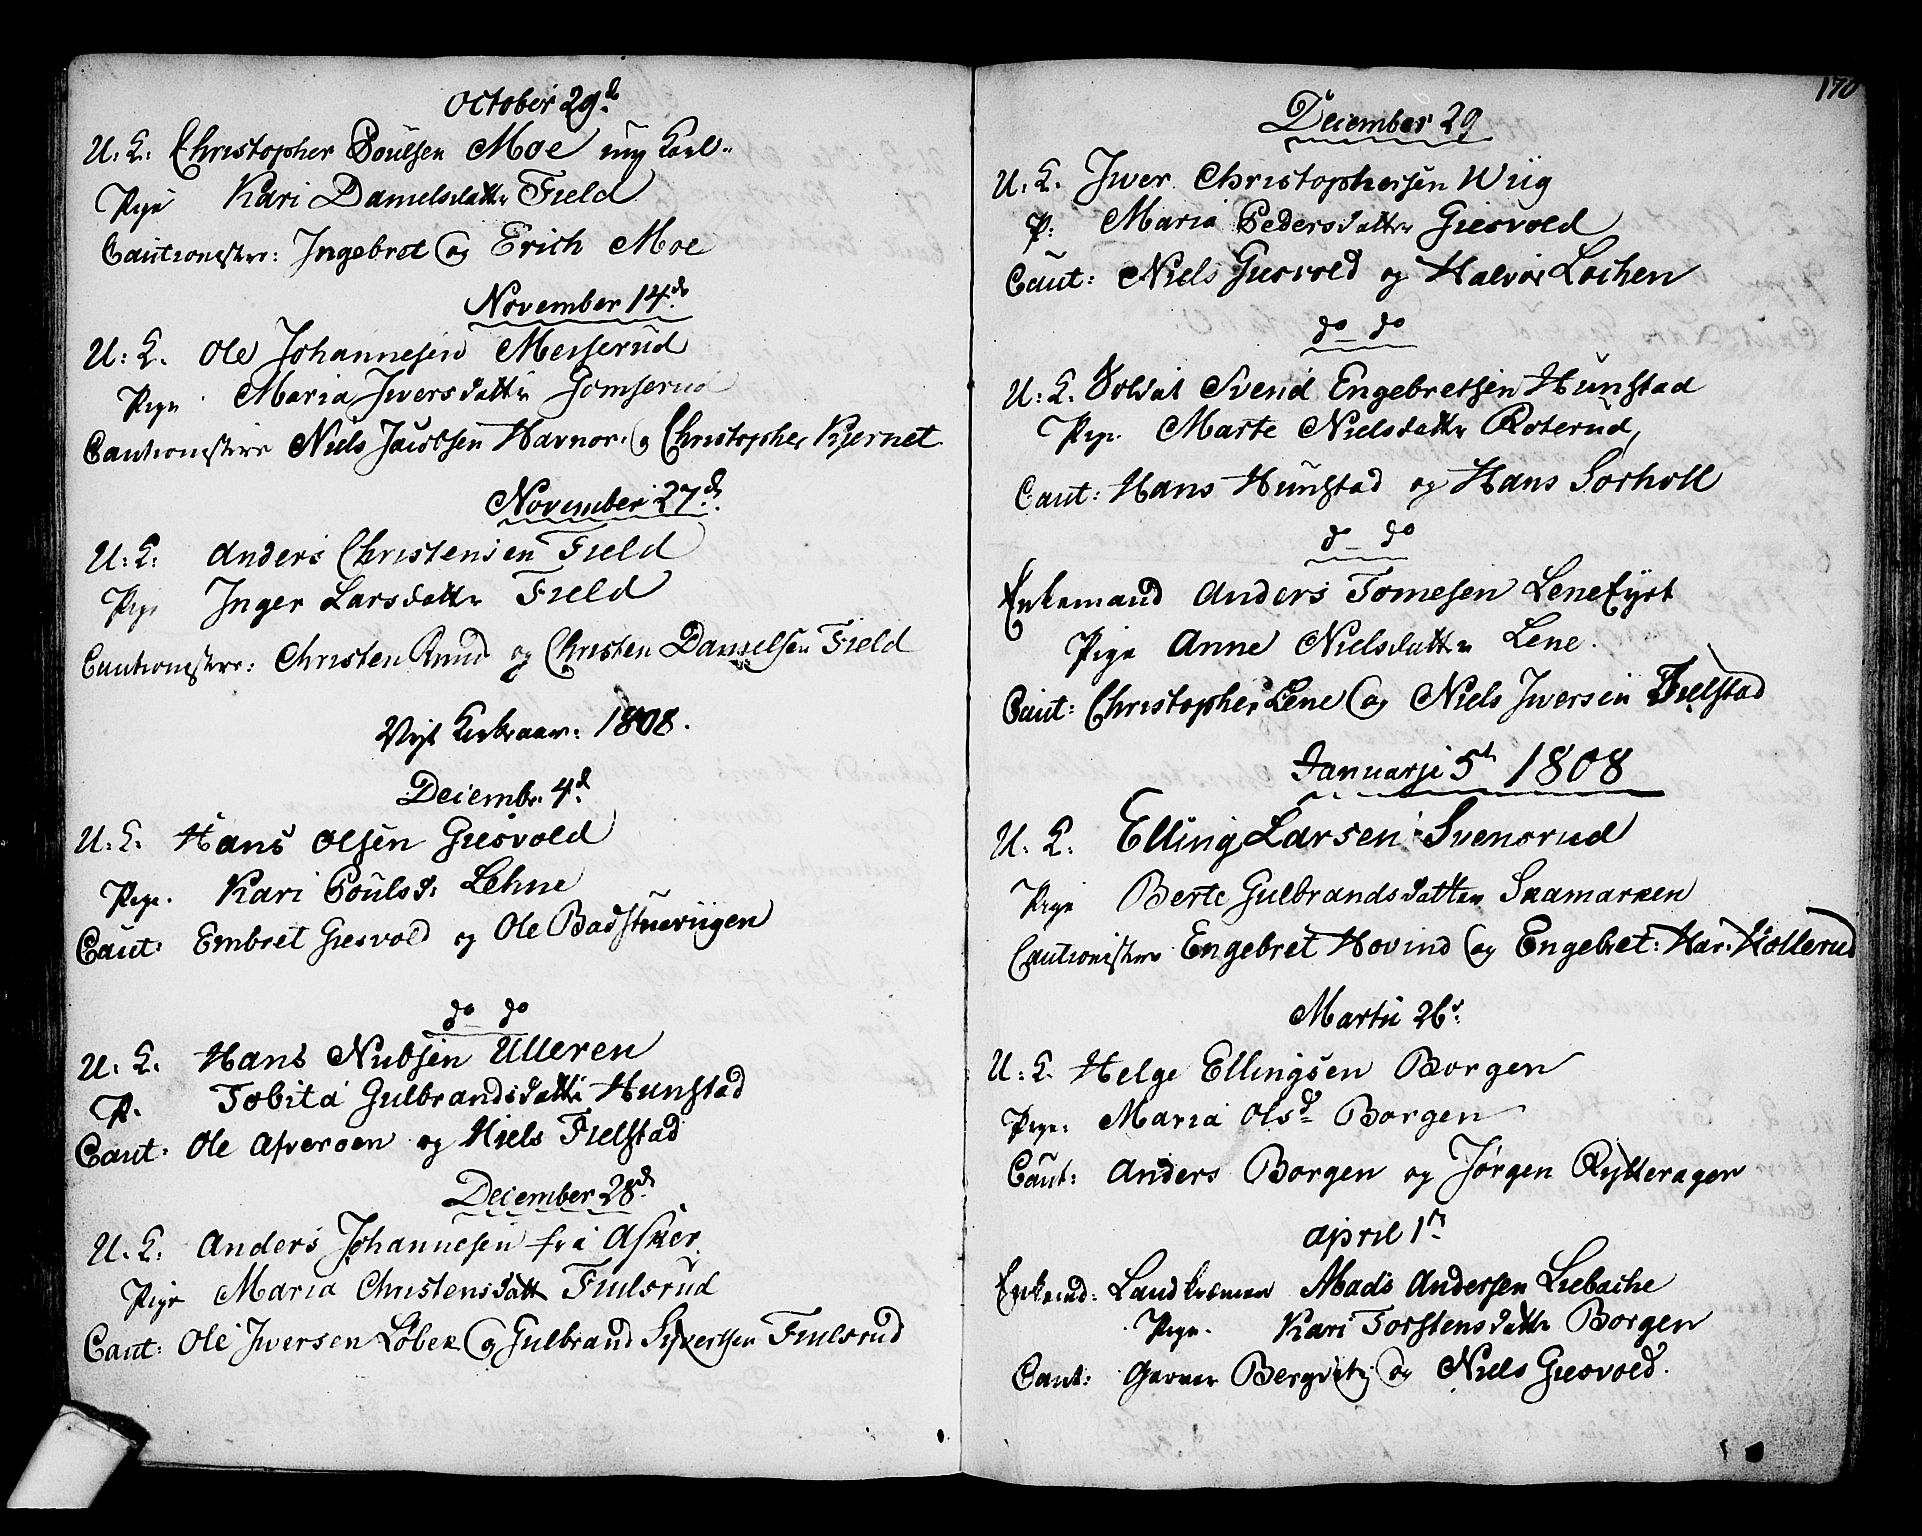 October 29d.
U. K. Christopher Poulsen Moe ung Karl
Pige Kari Danielsdatter Field
Cautionister: Ingebret og Erich Moe
November 14d.
U: K. Ole Johannesen Messerud
Pige Maria Iversdatter Gomserud
Cautionister Niels Jacobsen Havnor og Christopher Kjernet
November 27d.
U: K: Anders Christensen Field
Pige Inger Larsdatter Field
Cautionister: Christen Ruud og Christen Danielsen Field
Nyt Kirkeaar: 1808.
Decembr. 4d.
U. K. Hans Olsen Giesvold
Pige. Kari Poulsd: Lehne
Caut: Embret Giesvold og Ole Badstuerugen
do – do
U. K. Hans Nubsen Ulleren
P. Tobita Gulbrandsdatter Hunstad
Caut: Ole Afveroen og Niels Fielstad
December 28d.
U. K: Anders Johannesen fra Asker
Pige Maria Christensdatt Fiulsrud
Caut: Ole Iversen Løbek og Gulbrand Syvertsen Fiulsrud
170
December 29
U. K. Iver Christophersen Wiig
P: Maria Pedersdatter Giesvold
Caut: Niels Giesvold og Halvor Lochen
do – do
U: K. Soldat Svend Engebretsen Hunstad
Pige. Marte Nielsdatter Roterud,
Caut: Hans Hunstad og Hans Sorholt
do – do
Enkemand Anders Tomesen Lene
Pige Anne Nielsdatter Lene.
Caut: Christopher Lene og Niels Iversen Fielstad
Januarji 5t 1808
U. K. Elling Larsen Svensrud
Pige Berte Gulbrandsdatter Skamarken
Cautionister Engebret Hovind og Engebret: Har. Kollerud
Martii 26d.
U: K Helge Ellingsen Borgen
Pige: Maria Olsd Borgen
Caut: Anders Borgen og Jørgen Rytterager
April 1d
Enkemd: Landkræmer Mads Andersen Liebache
Pige. Kari Torstensdatter Borgen
Caut: Garver Bergvitz og Niels Giesvold.